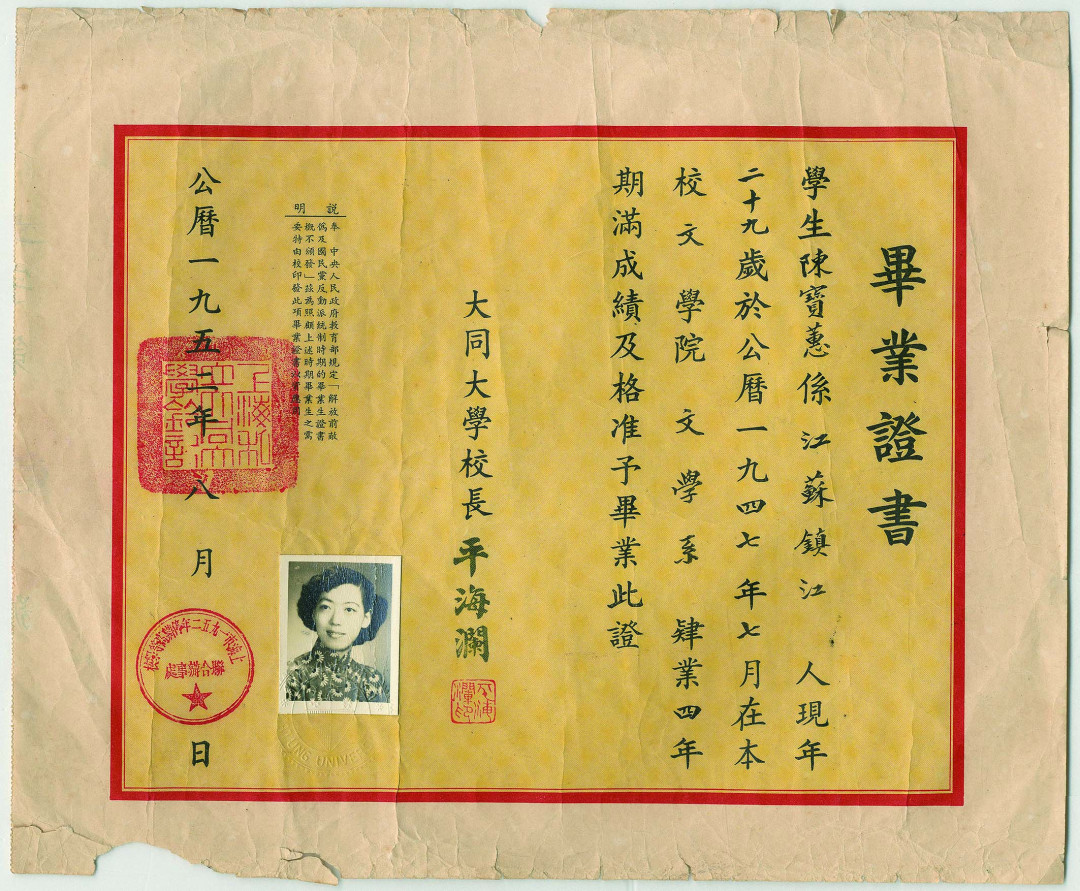 畢業證書
學生陳寶蕙係江蘇鎮江人現年
二十九歲於公曆一九四七年七月在本
校文學院文學系肄業四年
期滿成績及格准予畢業此證
大同大學校長平海瀾
平海瀾印
説明
奉 中央人民政府教育部規定「解放前敵
僞及國民黨反動派統制時期的畢業生證書
概不頒發」茲為照顧上述時期畢業生之需
要特由校印發此項畢業證書
公曆一九五二年八月日
上海市一九五二年停辦高等學校
聯合辦事處